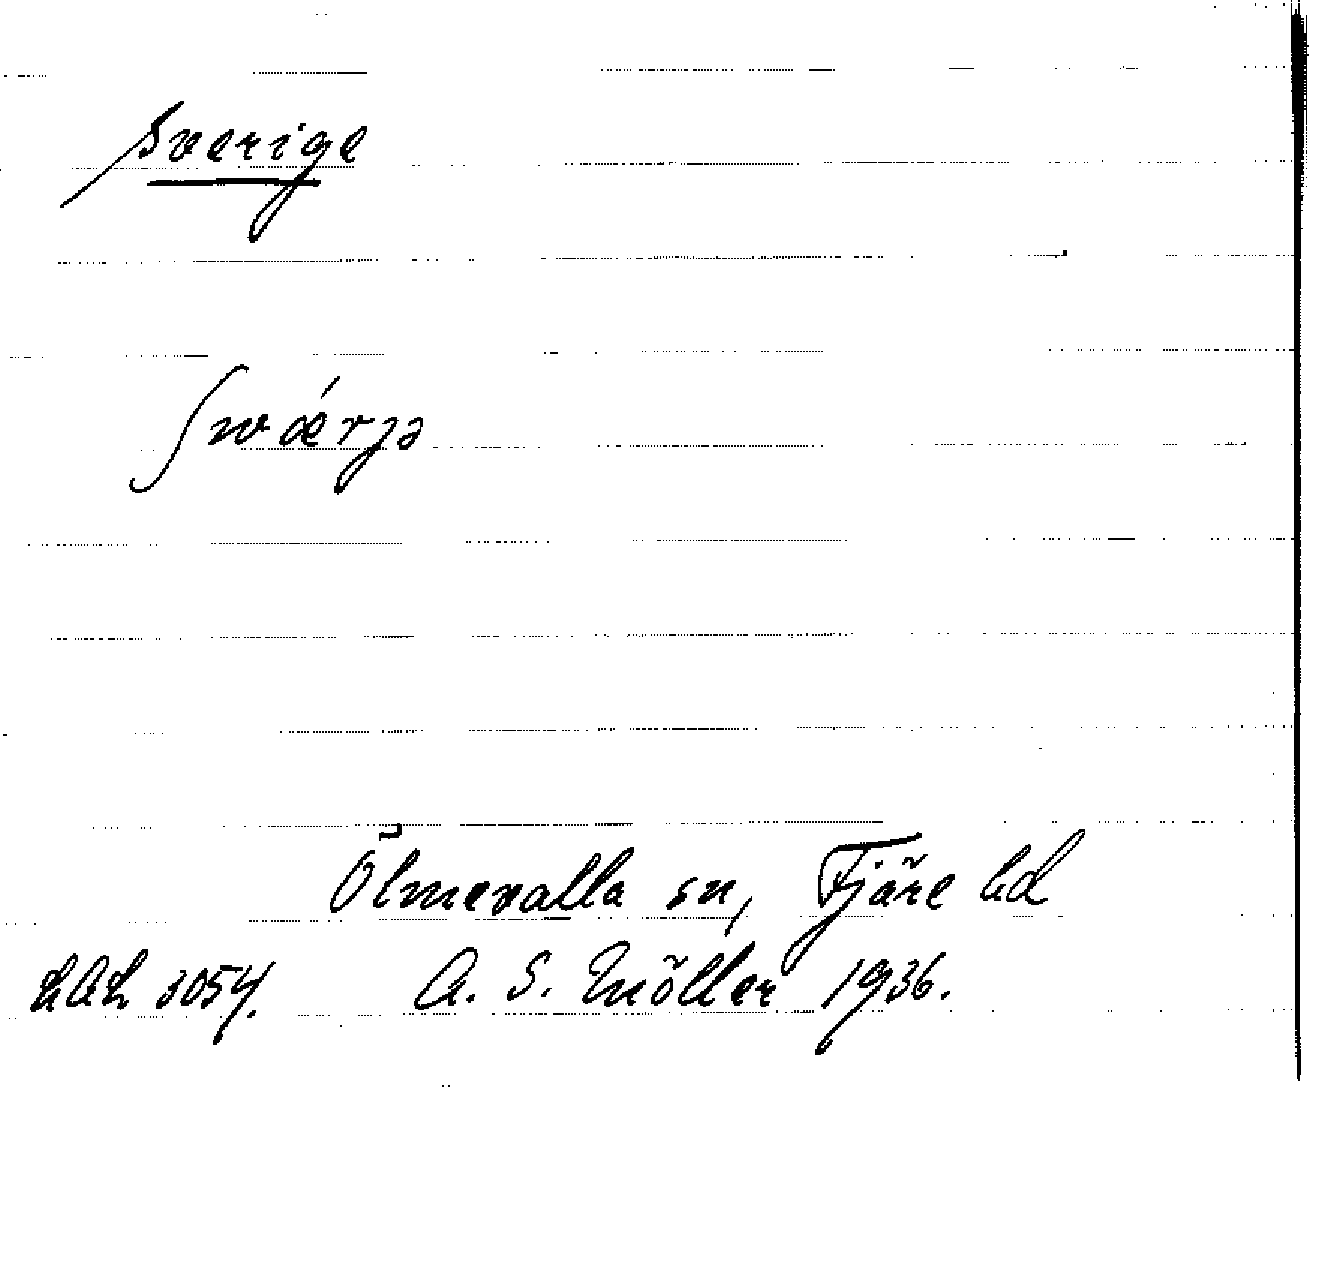 Sverige
ʃwǽrjə
Ölmevalla sn, Fjäre hd
LAL 3054. A. S. Möller 1936.